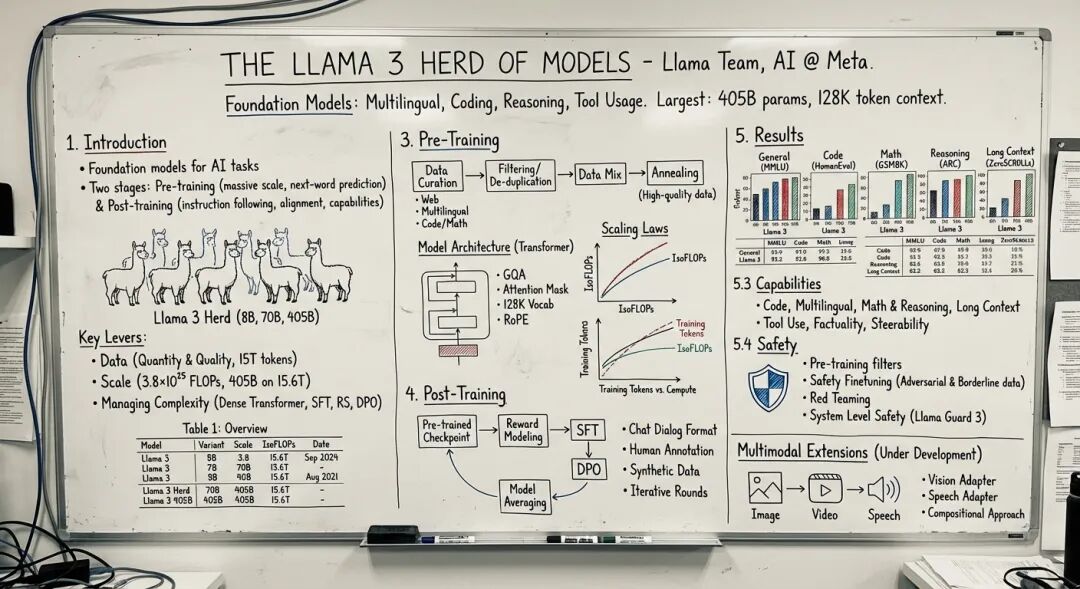 THE LLAMA 3 HERD OF MODELS - Llama Team, AI @ Meta.
Foundation Models: Multilingual, Coding, Reasoning, Tool Usage. Largest: 405B params, 128K token context.
1. Introduction
• Foundation models for AI tasks
• Two stages: Pre-training (massive scale, next-word prediction)
& Post-training (instruction following, alignment, capabilities)
Llama 3 Herd (8B, 70B, 405B)
Key Levers:
• Data (Quantity & Quality, 15T tokens)
• Scale (3.8×10²⁵ FLOPs, 405B on 15.6T)
• Managing Complexity (Dense Transformer, SFT, RS, DPO)
Table 1: Overview
Model Variant Scale IseFLOPs Date
Llama 3 3.8 15.6T Sep 2024
Llama 3 70B -
Llama 3 15.6T Aug 2021
Llama 3 Herd 70B 405B 15.6T -
Llama 3 405B 405B 405B 15.6T -
3. Pre-Training
Data Curation
Filtering/ De-duplication
Data Mix
Annealing
(High-quality data)
• Web
• Multilingual
• Code/Math
Model Architecture (Transformer)
• GQA
• Attention Mask
• 128K Vocab
• RoPE
Scaling Laws
IsoFLOPs
IsoFLOPs
IsoFLOPs
Training Tokens
Training
Tokens
IsoFLOPs
Training Tokens vs. Compute
4. Post-Training
Pre-trained Checkpoint
Reward Modeling
SFT
DPO
Model Averaging
• Chat Dialog Format
• Human Annotation
• Synthetic Data
• Iterative Rounds
5. Results
General (MMLU)
Llama 3
Code (HumanEval)
Llama 3
Math (GSM8K)
Llama 3
Reasoning (ARC)
Llama 3
Long Context (ZeroSCROLLs)
Llama 3
MMLU Code Math
General
Llama 3
MMLU Code Math
Code
Code
Reasoning
Long Context
5.3 Capabilities
• Code, Multilingual, Math & Reasoning, Long Context
• Tool Use, Factuality, Steerability
5.4 Safety
• Pre-training filters
• Safety Finetuning (Adversarial & Borderline data)
• Red Teaming
• System Level Safety (Llama Guard 3)
Multimodal Extensions (Under Development)
Image
Video
Speech
• Vision Adapter
• Speech Adapter
• Compositional Approach